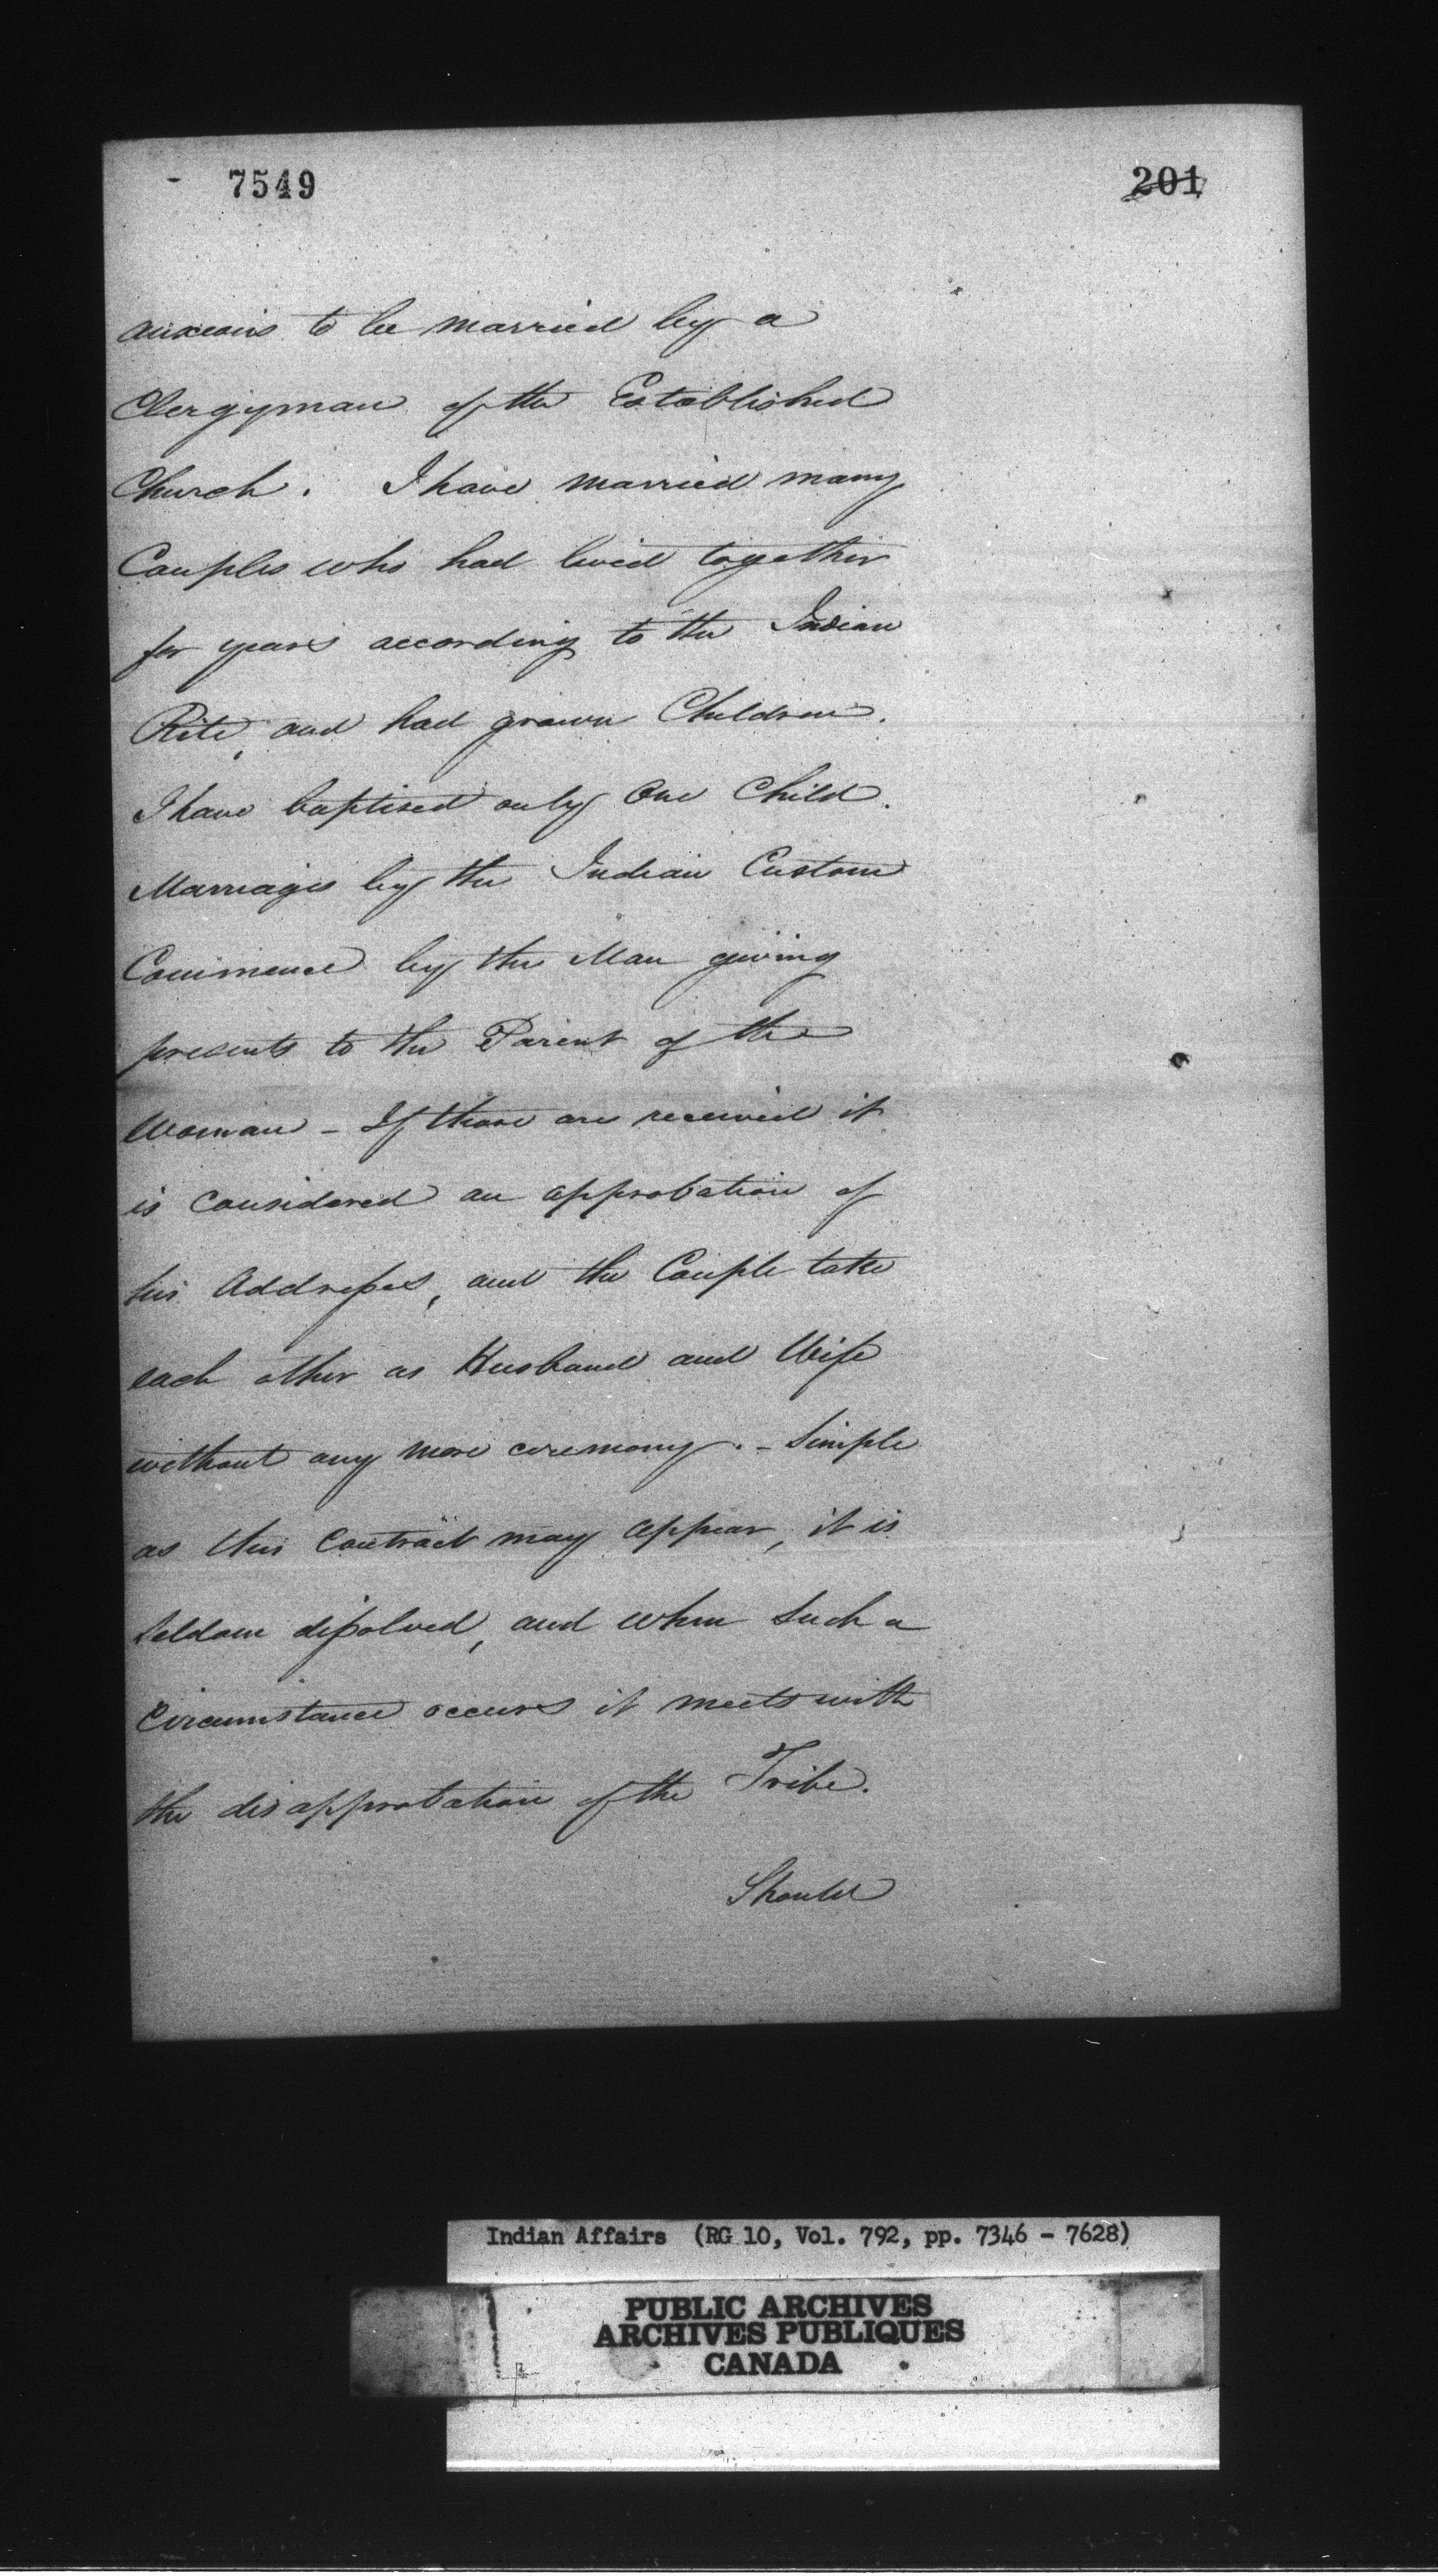 7549
201
anxious to be married by a
Clergyman of the Established
Church. I have married many
Couples who had lived together
for years according to the Indian
Rite, and had grown Children.
I have baptised only One Child.
Marriages by the Indian Custom
Commence by the Man giving
presents to the Parent of the
Woman - If those are received it
is considered an approbation of
his Addresses, and the Couple take
each other as Husband and Wife
without any more ceremony. - Simple
as this Contract may appear, it is
seldom dissolved, and when such a
Circumstance occurs it meets with
the disapprobation of the Tribe.
Should
Indian Affairs (RG 10, Vol. 792, pp. 7346 - 7628)
PUBLIC ARCHIVES
ARCHIVES PUBLIQUES
CANADA